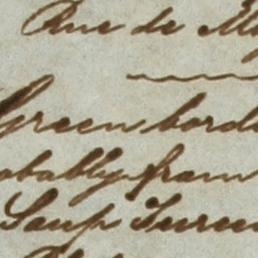 Rue de
Green bord
obably from
Soup Tureen